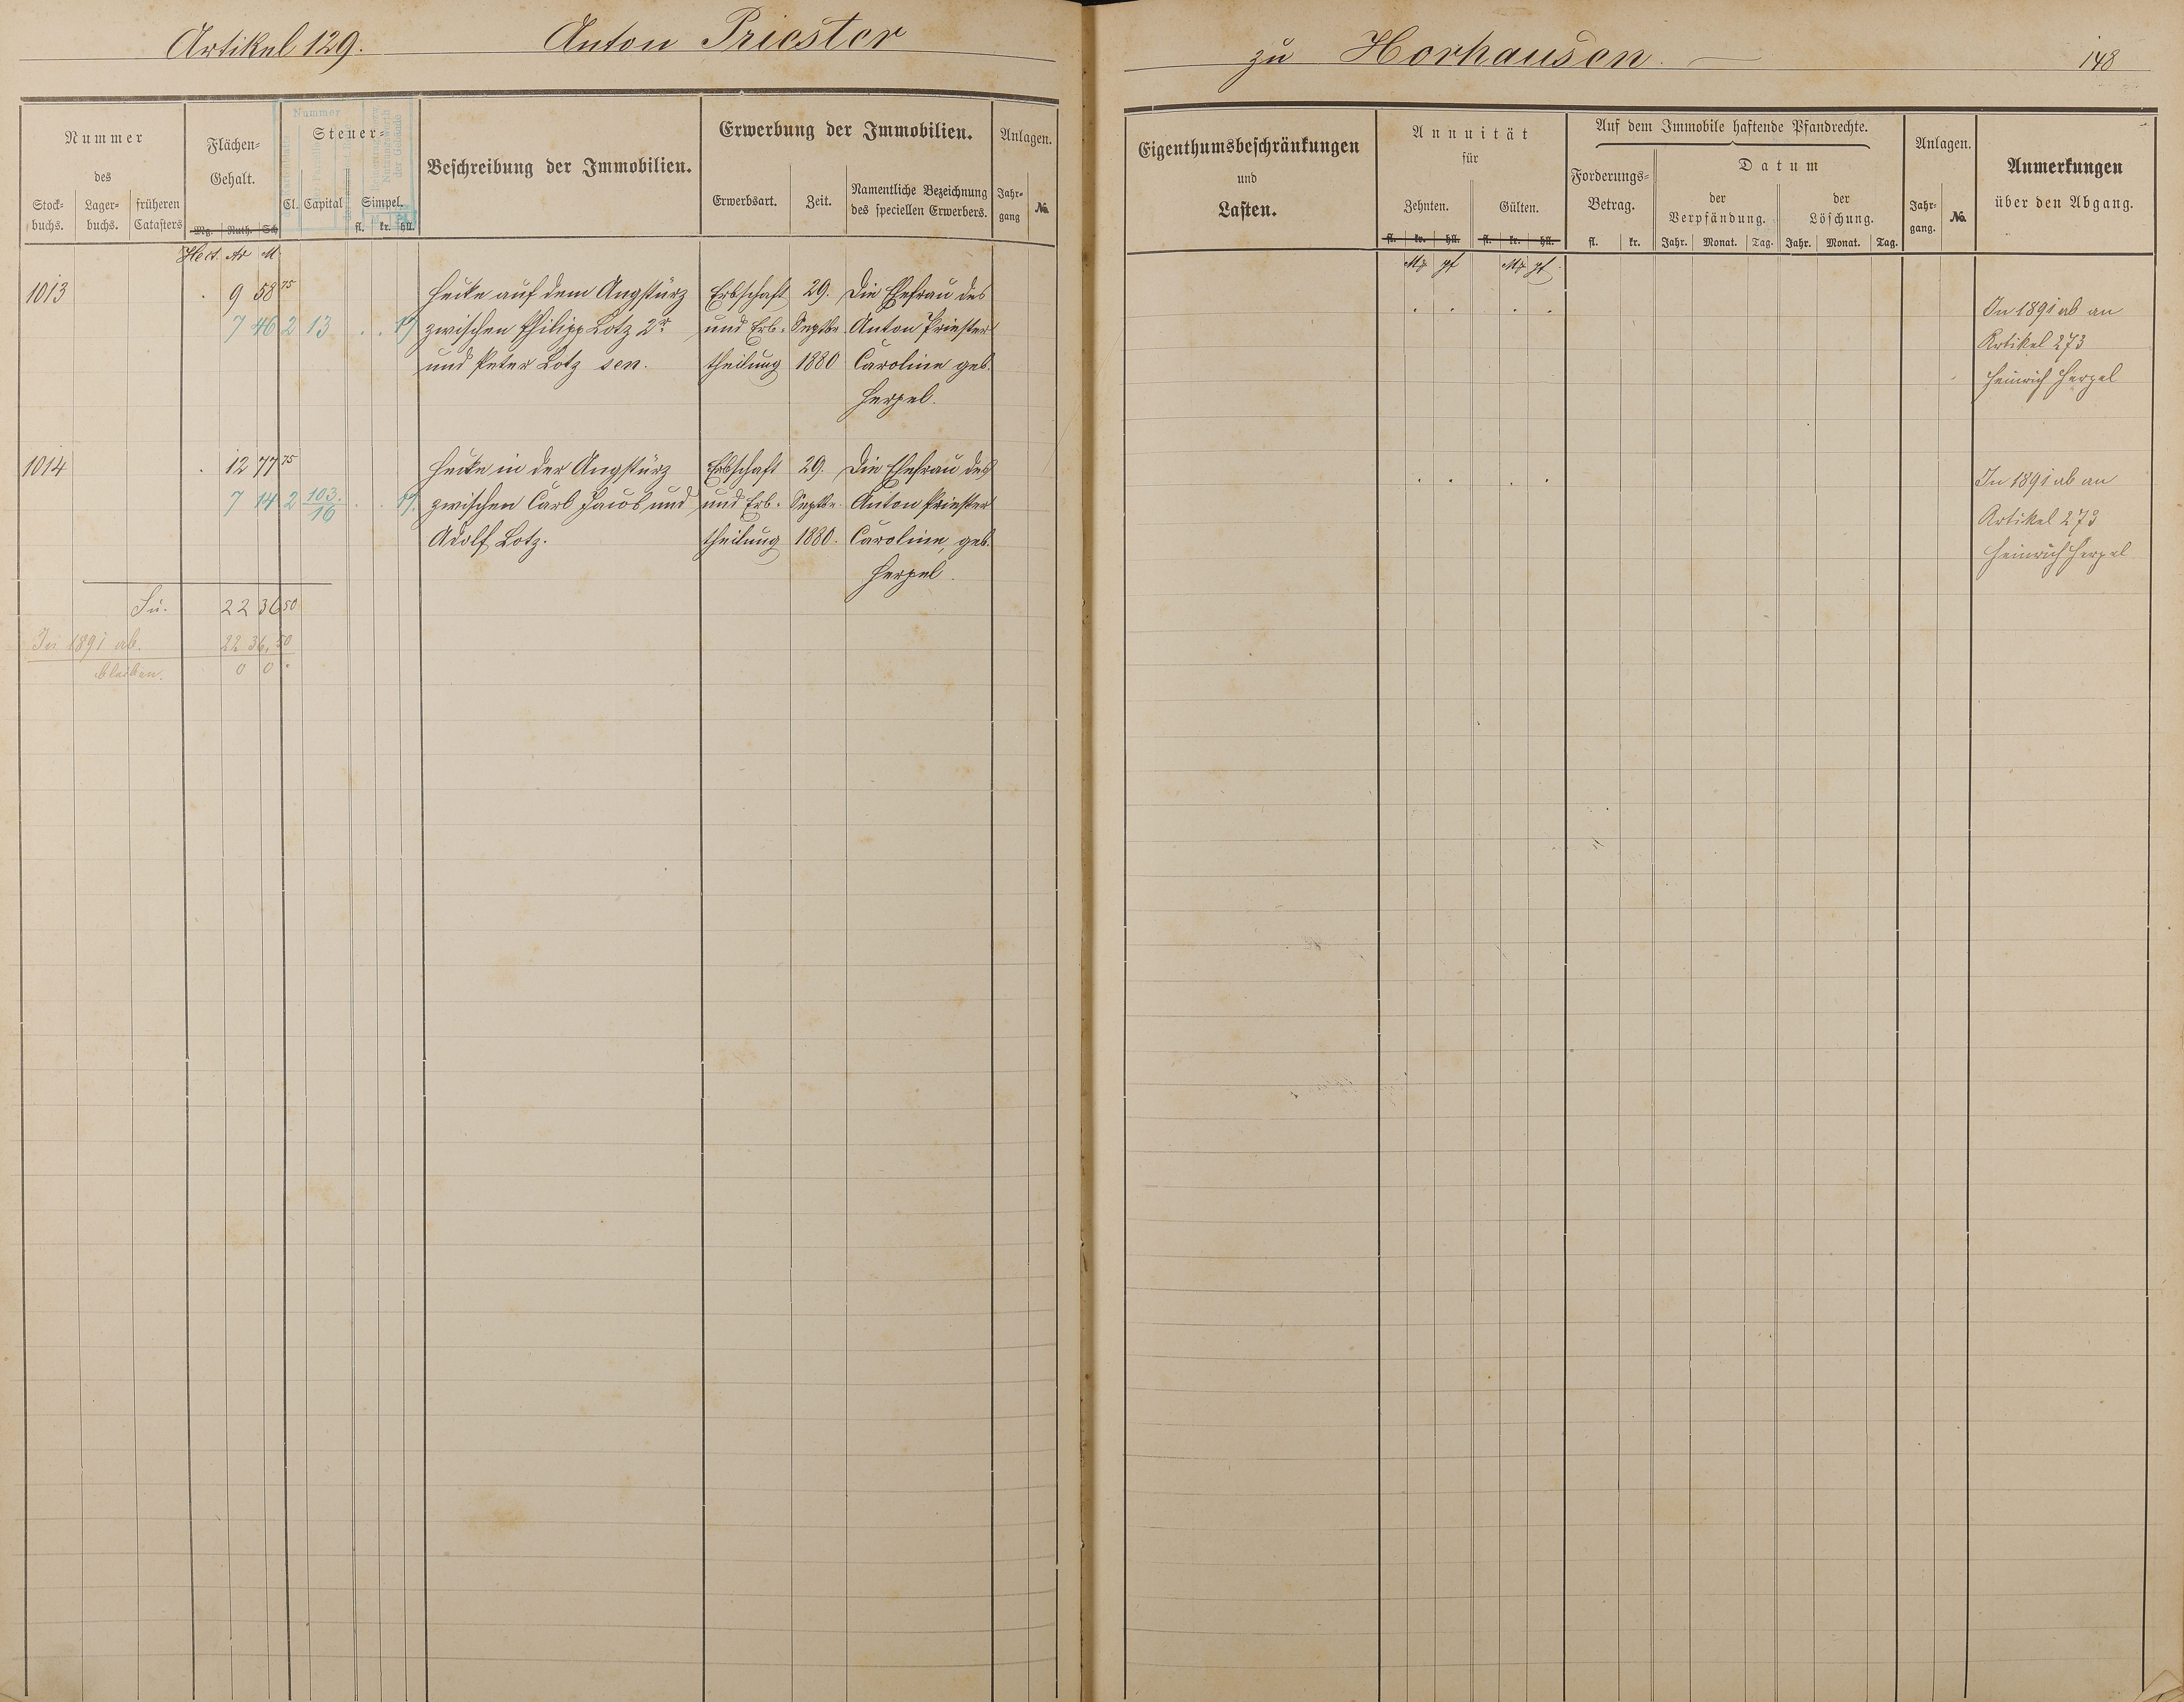 Artikel 129. Anton Priester zu Horhausen. 148
Nummer
des
Stock-buchs. Lager-buchs. früheren Catasters
Flächen-Gehalt.
Mg. Ruth. Sch
Nummer
Steuer-
Cl. Capital Simpel.
fl. kr. hll.
Beschreibung der Immobilien.
Erwerbung der Immobilien.
Erwerbsart. Zeit. Namentliche Bezeichnung des speciellen Erwerbers.
Anlagen.
Jahr-gang No.
Eigenthumsbeschränkungen
und
Lasten.
Annuität
für
Zehnten. Gülten.
fl. kr. hll. fl. kr. hll.
Auf dem Immobile haftende Pfandrechte.
Forderungs-Betrag.
fl. kr.
Datum
der Verpfändung. der Löschung.
Jahr. Monat. Tag. Jahr. Monat. Tag.
Anlagen.
Jahr-gang. No.
Anmerkungen
über den Abgang.
Hect. Ar M
Mk Pf Mk Pf
1013 . 9 58 75 Hecke auf dem Angstürz Erbschaft 29. Die Ehefrau des
7 46 2 13 . . 17 zwischen Philipp Lotz 2r und Erb- Septbr. Anton Priester In 1891 ab an
und Peter Lotz sen. theilung 1880 Caroline geb. Artikel 273
Herpel. Heinrich Herpel
1014 . 12 77 75 Hecke in der Angstürz Erbschaft 29. Die Ehefrau des In 1891 ab an
7 14 2 103/16 . . 17. zwischen Carl Jacob und und Erb- Septbr. Anton Priester Artikel 273
Adolf Lotz. theilung 1880. Caroline, geb. Heinrich Herpel
Herpel.
Su. 22 36 50
In 1891 ab. 22 36,50
bleiben. 0 0 .